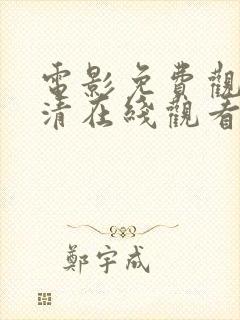 電影免費觀
清在綫觀看
鄭宇成